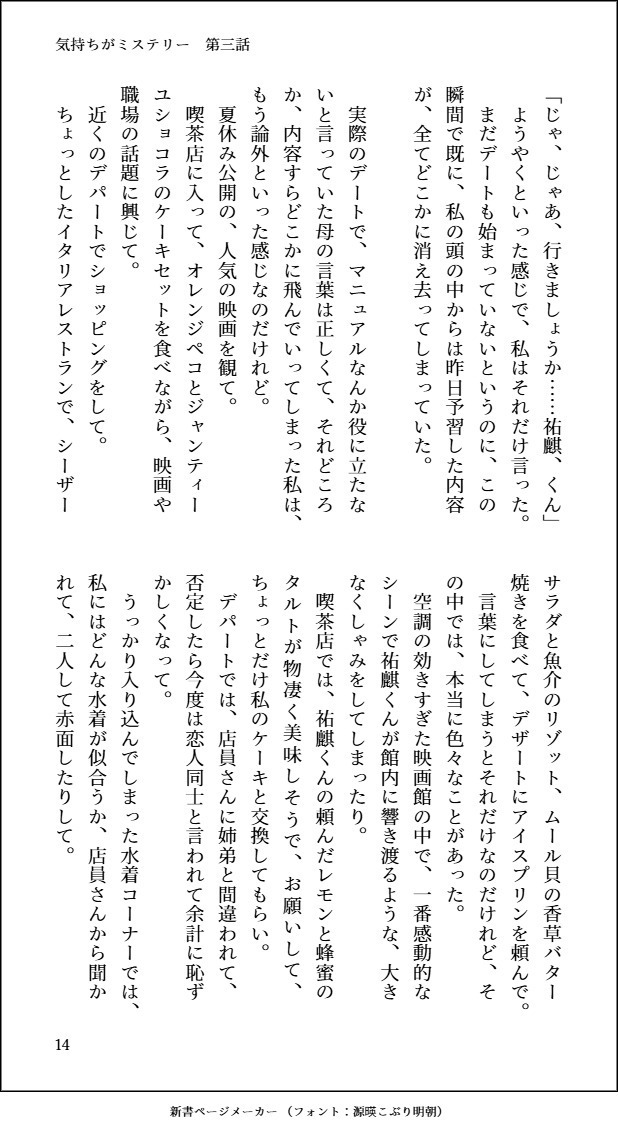 気持ちがミステリー　第三話
「じゃ、じゃあ、行きましょうか……祐麒、くん」
　ようやくといった感じで、私はそれだけ言った。
　まだデートも始まっていないというのに、この
瞬間で既に、私の頭の中からは昨日予習した内容
が、全てどこかに消え去ってしまっていた。
　実際のデートで、マニュアルなんか役に立たな
いと言っていた母の言葉は正しくて、それどころ
か、内容すらどこかに飛んでいってしまった私は、
もう論外といった感じなのだけれど。
　夏休み公開の、人気の映画を観て。
　喫茶店に入って、オレンジペコとジャンティー
ユショコラのケーキセットを食べながら、映画や
職場の話題に興じて。
　近くのデパートでショッピングをして。
　ちょっとしたイタリアレストランで、シーザー
サラダと魚介のリゾット、ムール貝の香草バター
焼きを食べて、デザートにアイスプリンを頼んで。
　言葉にしてしまうとそれだけなのだけれど、そ
の中では、本当に色々なことがあった。
　空調の効きすぎた映画館の中で、一番感動的な
シーンで祐麒くんが館内に響き渡るような、大き
なくしゃみをしてしまったり。
　喫茶店では、祐麒くんの頼んだレモンと蜂蜜の
タルトが物凄く美味しそうで、お願いして、
ちょっとだけ私のケーキと交換してもらい。
　デパートでは、店員さんに姉弟と間違われて、
否定したら今度は恋人同士と言われて余計に恥ず
かしくなって。
　うっかり入り込んでしまった水着コーナーでは、
私にはどんな水着が似合うか、店員さんから聞か
れて、二人して赤面したりして。
14
新書ページメーカー（フォント：源暎こぶり明朝）